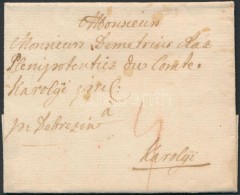 Monsieur
Monsieur Demetrius
Plenipotentier du Comte
Karolÿi
a
pr Debrezin
Karolÿi